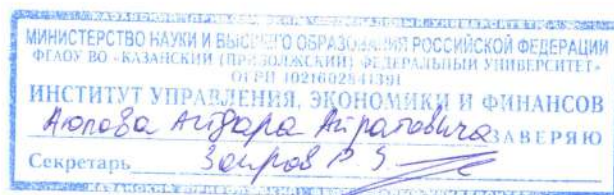 МИНИСТЕРСТВО НАУКИ И ВЫСШЕГО ОБРАЗОВАНИЯ РОССИЙСКОЙ ФЕДЕРАЦИИ
ФГАОУ ВО «КАЗАНСКИЙ (ПРИВОЛЖСКИЙ) ФЕДЕРАЛЬНЫЙ УНИВЕРСИТЕТ»
ОГРН 1021602841391
ИНСТИТУТ УПРАВЛЕНИЯ, ЭКОНОМИКИ И ФИНАНСОВ
Аюпова Айдара Айратовича ЗАВЕРЯЮ
Секретарь